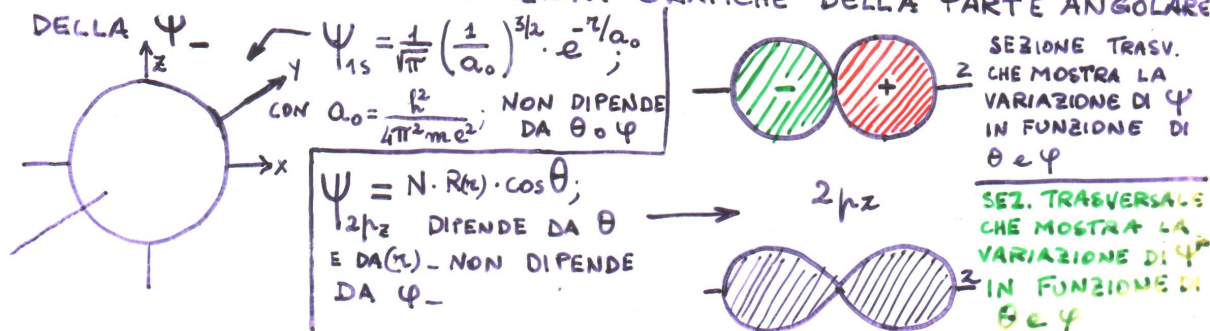 GRAFICHE DELLA PARTE ANGOLARE
DELLA Ψ_
z
y
x
Ψ1s = 1/√π (1/a₀)^3/2 · e^-r/a₀;
CON a₀ = h²/4π²me²; NON DIPENDE
DA θ o φ
Ψ2pz = N · R(r) · cos θ;
DIPENDE DA θ
E DA (r)_ NON DIPENDE
DA φ_
- +
z
2pz
z
SEZIONE TRASV.
CHE MOSTRA LA
VARIAZIONE DI Ψ
IN FUNZIONE DI
θ e φ
SEZ. TRASVERSALE
CHE MOSTRA LA
VARIAZIONE DI
IN FUNZIONE DI
θ e φ